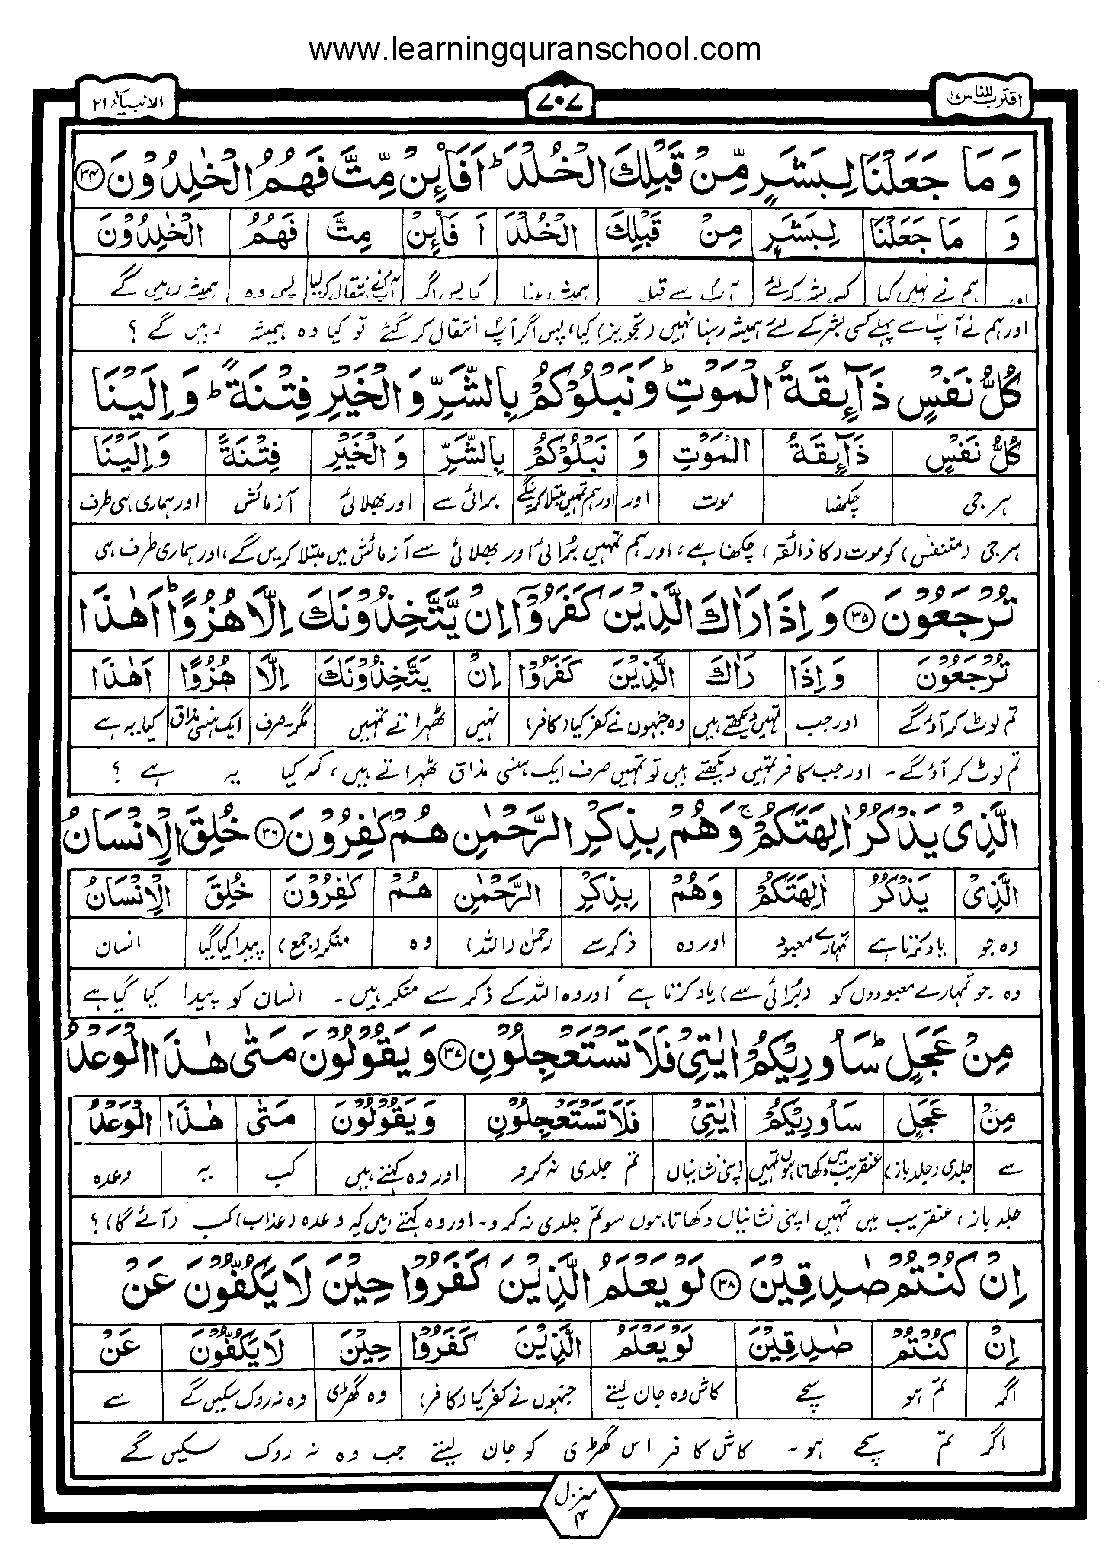 www.learningquranschool.com
اقترب للناس ۱۷
۷۰۷
الانبیاء ۲۱
وَمَا جَعَلْنَا لِبَشَرٍ مِّنْ قَبْلِكَ الْخُلْدَ ؕ اَفَا۟ئِنْ مِّتَّ فَهُمُ الْخٰلِدُوْنَ ﴿۳۴﴾
وَ مَا جَعَلْنَا لِبَشَرٍ مِنْ قَبْلِكَ الْخُلْدَ اَ فَا۟ئِنْ مِتَّ فَهُمُ الْخٰلِدُوْنَ
اور ہم نے نہیں کیا کسی بشر کے لئے آپؐ سے قبل ہمیشہ رہنا کیا پس اگر آپؐ نے انتقال کر لیا پس وہ ہمیشہ رہیں گے
اور ہم نے آپؐ سے پہلے کسی بشر کے لئے ہمیشہ رہنا نہیں (تجویز) کیا، پس اگر آپؐ انتقال کر گئے تو کیا وہ ہمیشہ رہیں گے ؟
كُلُّ نَفْسٍ ذَآئِقَةُ الْمَوْتِ ؕ وَنَبْلُوْكُمْ بِالشَّرِّ وَالْخَيْرِ فِتْنَةً ؕ وَاِلَيْنَا
كُلُّ نَفْسٍ ذَآئِقَةُ الْمَوْتِ وَ نَبْلُوْكُمْ بِالشَّرِّ وَالْخَيْرِ فِتْنَةً وَاِلَيْنَا
ہر جی چکھنا موت اور اور ہم تمہیں مبتلا کرینگے برائی سے اور بھلائی آزمائش اور ہماری ہی طرف
ہر جی (متنفس) کو موت (کا ذائقہ) چکھنا ہے، اور ہم تمہیں بُرائی اور بھلائی سے آزمائش میں مبتلا کریں گے، اور ہماری طرف ہی
تُرْجَعُوْنَ ﴿۳۵﴾ وَاِذَا رَاٰكَ الَّذِيْنَ كَفَرُوْۤا اِنْ يَّتَّخِذُوْنَكَ اِلَّا هُزُوًا ؕ اَهٰذَا
تُرْجَعُوْنَ وَاِذَا رَاٰكَ الَّذِيْنَ كَفَرُوْۤا اِنْ يَتَّخِذُوْنَكَ اِلَّا هُزُوًا اَهٰذَا
تم لوٹ کر آؤ گے اور جب تمہیں دیکھتے ہیں وہ جنہوں نے کفر کیا (کافر) نہیں ٹھہراتے تمہیں مگر۔صرف ایک ہنسی مذاق کیا یہ ہے
تم لوٹ کر آؤ گے۔ اور جب کافر تمہیں دیکھتے ہیں تو تمہیں صرف ایک ہنسی مذاق ٹھہراتے ہیں، کہ کیا یہ ہے ؟
الَّذِيْ يَذْكُرُ اٰلِهَتَكُمْ ۚ وَهُمْ بِذِكْرِ الرَّحْمٰنِ هُمْ كٰفِرُوْنَ ﴿۳۶﴾ خُلِقَ الْاِنْسَانُ
الَّذِيْ يَذْكُرُ اٰلِهَتَكُمْ وَهُمْ بِذِكْرِ الرَّحْمٰنِ هُمْ كٰفِرُوْنَ خُلِقَ الْاِنْسَانُ
وہ جو یاد کرتا ہے تمہارے معبود اور وہ ذکر سے رحمٰن (اللہ) وہ منکر (جمع) پیدا کیا گیا انسان
وہ جو تمہارے معبودوں کو (بُرائی سے) یاد کرتا ہے، اور وہ اللہ کے ذکر سے منکر ہیں۔ انسان کو پیدا کیا گیا ہے
مِنْ عَجَلٍ ؕ سَاُورِيْكُمْ اٰيٰتِيْ فَلَا تَسْتَعْجِلُوْنِ ﴿۳۷﴾ وَيَقُوْلُوْنَ مَتٰى هٰذَا الْوَعْدُ
مِنْ عَجَلٍ سَاُورِيْكُمْ اٰيٰتِيْ فَلَا تَسْتَعْجِلُوْنِ وَيَقُوْلُوْنَ مَتٰى هٰذَا الْوَعْدُ
سے جلدی (جلد باز) عنقریب میں دکھاتا ہوں تمہیں اپنی نشانیاں تم جلدی نہ کرو اور وہ کہتے ہیں کب یہ وعدہ
جلد باز، عنقریب میں تمہیں اپنی نشانیاں دکھاتا ہوں سو تم جلدی نہ کرو۔ اور وہ کہتے ہیں کہ وعدہ (عذاب) کب (آئے گا)؟
اِنْ كُنْتُمْ صٰدِقِيْنَ ﴿۳۸﴾ لَوْ يَعْلَمُ الَّذِيْنَ كَفَرُوْا حِيْنَ لَا يَكُفُّوْنَ عَنْ
اِنْ كُنْتُمْ صٰدِقِيْنَ لَوْ يَعْلَمُ الَّذِيْنَ كَفَرُوْا حِيْنَ لَا يَكُفُّوْنَ عَنْ
اگر تم ہو سچے کاش وہ جان لیتے جنہوں نے کفر کیا (کافر) وہ گھڑی وہ نہ روک سکیں گے سے
اگر تم سچے ہو۔ کاش کافر اس گھڑی کو جان لیتے جب وہ نہ روک سکیں گے
منزل ۴